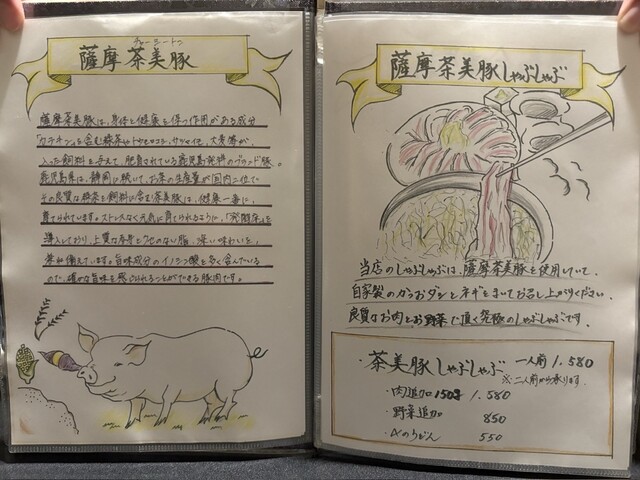 チャーミートン
薩摩 茶美豚
薩摩茶美豚は、身体と健康を保つ作用がある成分
「カテキン」を含む緑茶やトウモロコシ、サツマイモ、大麦等が
入った飼料を与えて肥育されている鹿児島発祥のブランド豚。
鹿児島県は、静岡に続いて、お茶の生産量が国内二位で
その良質な緑茶を飼料に含む茶美豚は、健康一番に
育てられています。ストレスなく元気に育てられるように、「発酵床」を
導入しており、上質な赤身とクセのない脂、深い味わいを
兼ね備えています。旨味成分のイノシン酸を多く含んでいる
ので、確かな旨味を感じられることができる豚肉です。
薩摩茶美豚しゃぶしゃぶ
当店のしゃぶしゃぶは、薩摩茶美豚を使用していて、
自家製のかつおダシとネギをまいてお召し上がりください。
良質なお肉とお野菜に頂く究極のしゃぶしゃぶです。
・茶美豚しゃぶしゃぶ 一人前 1.580
※二人前から承ります。
・肉追加150g 1.580
・野菜追加 850
・〆のうどん 550